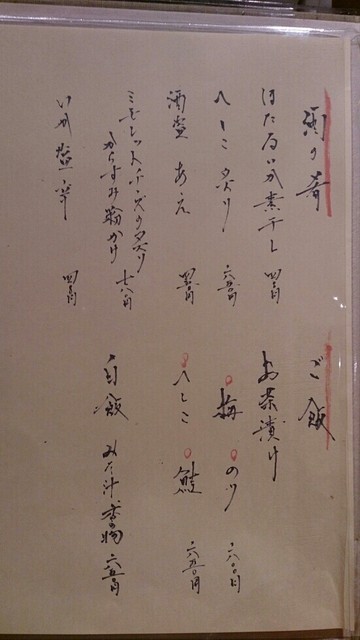 酒の肴
ほたるいか素干し
へしこ炙り 六五〇円
酒盗あえ
ミモレットチーズの炙り
からすみ粉かけ 七八〇円
いか塩辛
ご飯
お茶漬け
梅 のり 六八〇円
へしこ 鮭 六八〇円
白飯 みそ汁 香の物 六五〇円